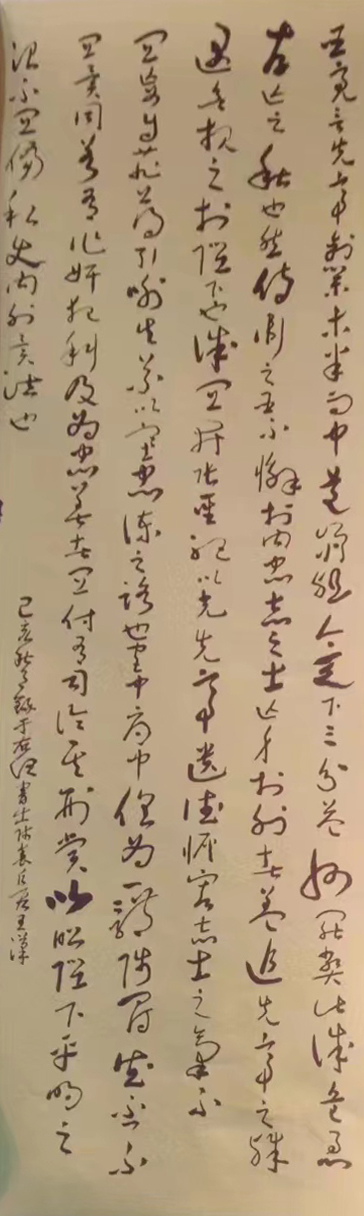 臣亮言先帝創業未半而中道崩殂今天下三分益州罷弊此誠危急
存亡之秋也然侍衛之臣不懈於内忠志之士亡身於外者蓋追先帝之殊
遇欲報之於陛下也誠宜開張聖聽以光先帝遺德恢宏志士之氣不
宜妄自菲薄引喻失義以塞忠諫之路也宮中府中俱為一體陟罰臧否不
宜異同若有作奸犯科及為忠善者宜付有司論其刑賞以昭陛下平明之
治不宜偏私使内外異法也
己亥秋月錄于